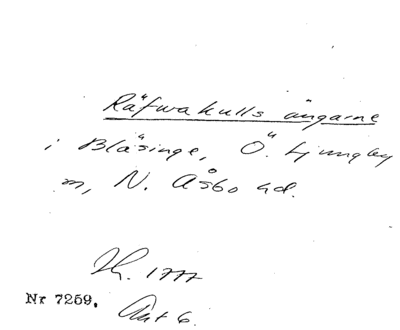 Räfwakulls ängarne
i Bläsinge, Ö. Ljungby
N. Åsbo hd.
Nr 7259.
Akt 6.